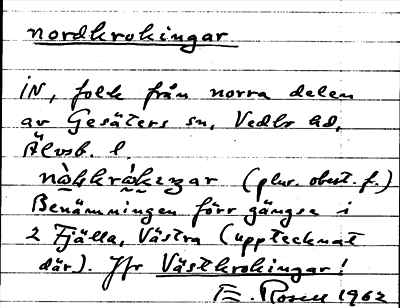 nordkrokingar
IN, folk från norra delen
av Gesäters sn, Vedbo hd,
Älvsb. l.
(plur. obest. f.)
Benämningen förr gängse i
2 Fjälla, Västra (upptecknat
där). Jfr Västkrokingar!
E. Rosell 1962